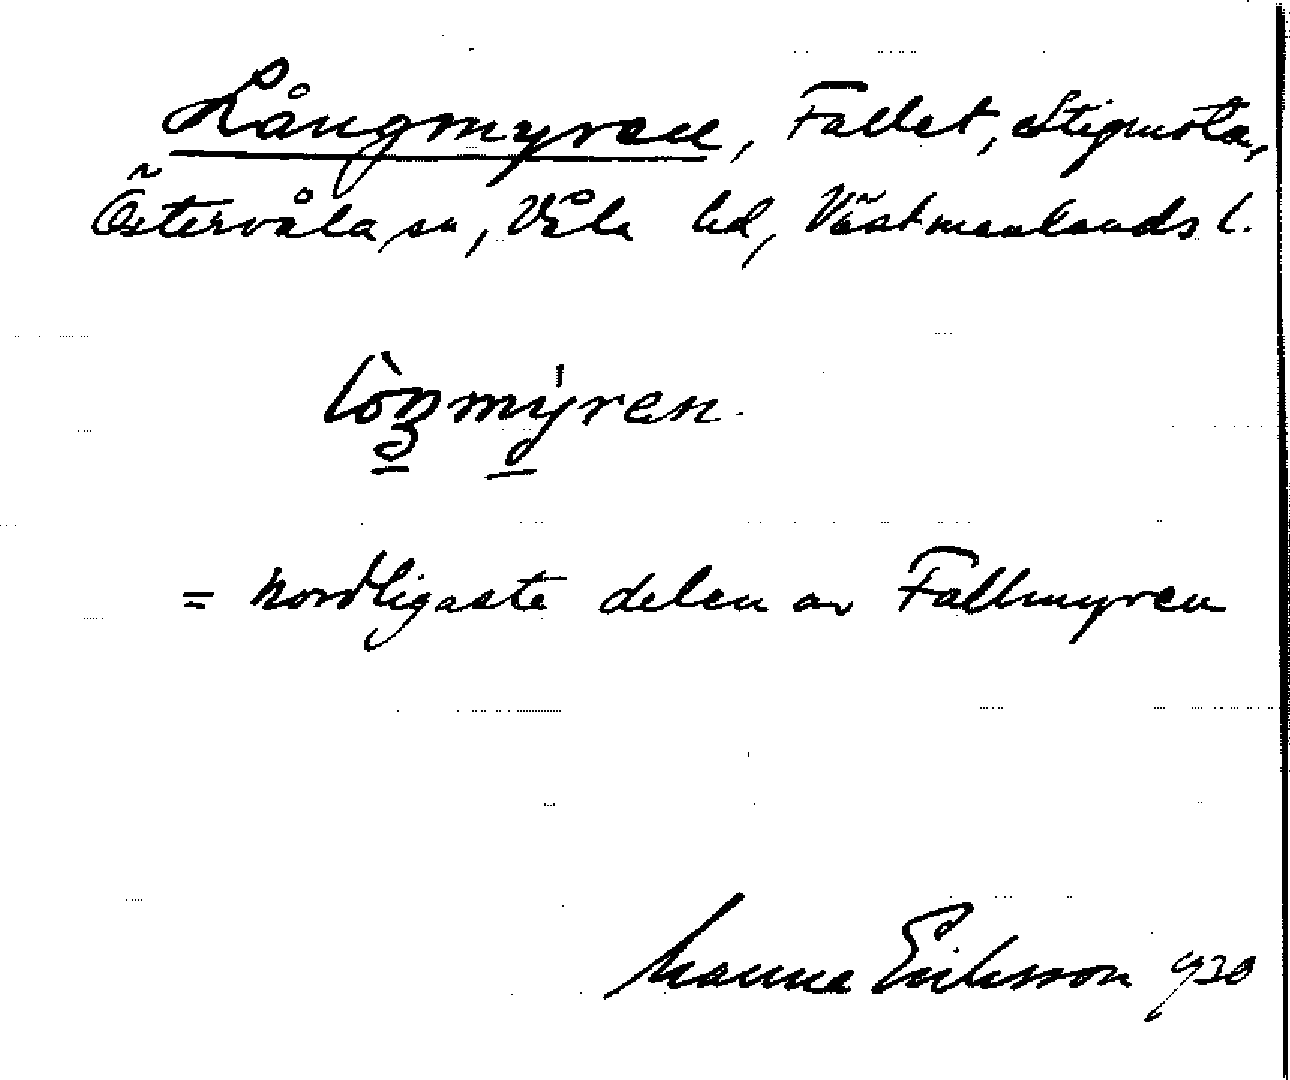 Långmyren, Fallet, Stigmota,
Östervåla sn, Våla hd, Västmanlands l.
lòŋmýren.
= nordligaste delen av Fallmyren
Manne Eriksson 930